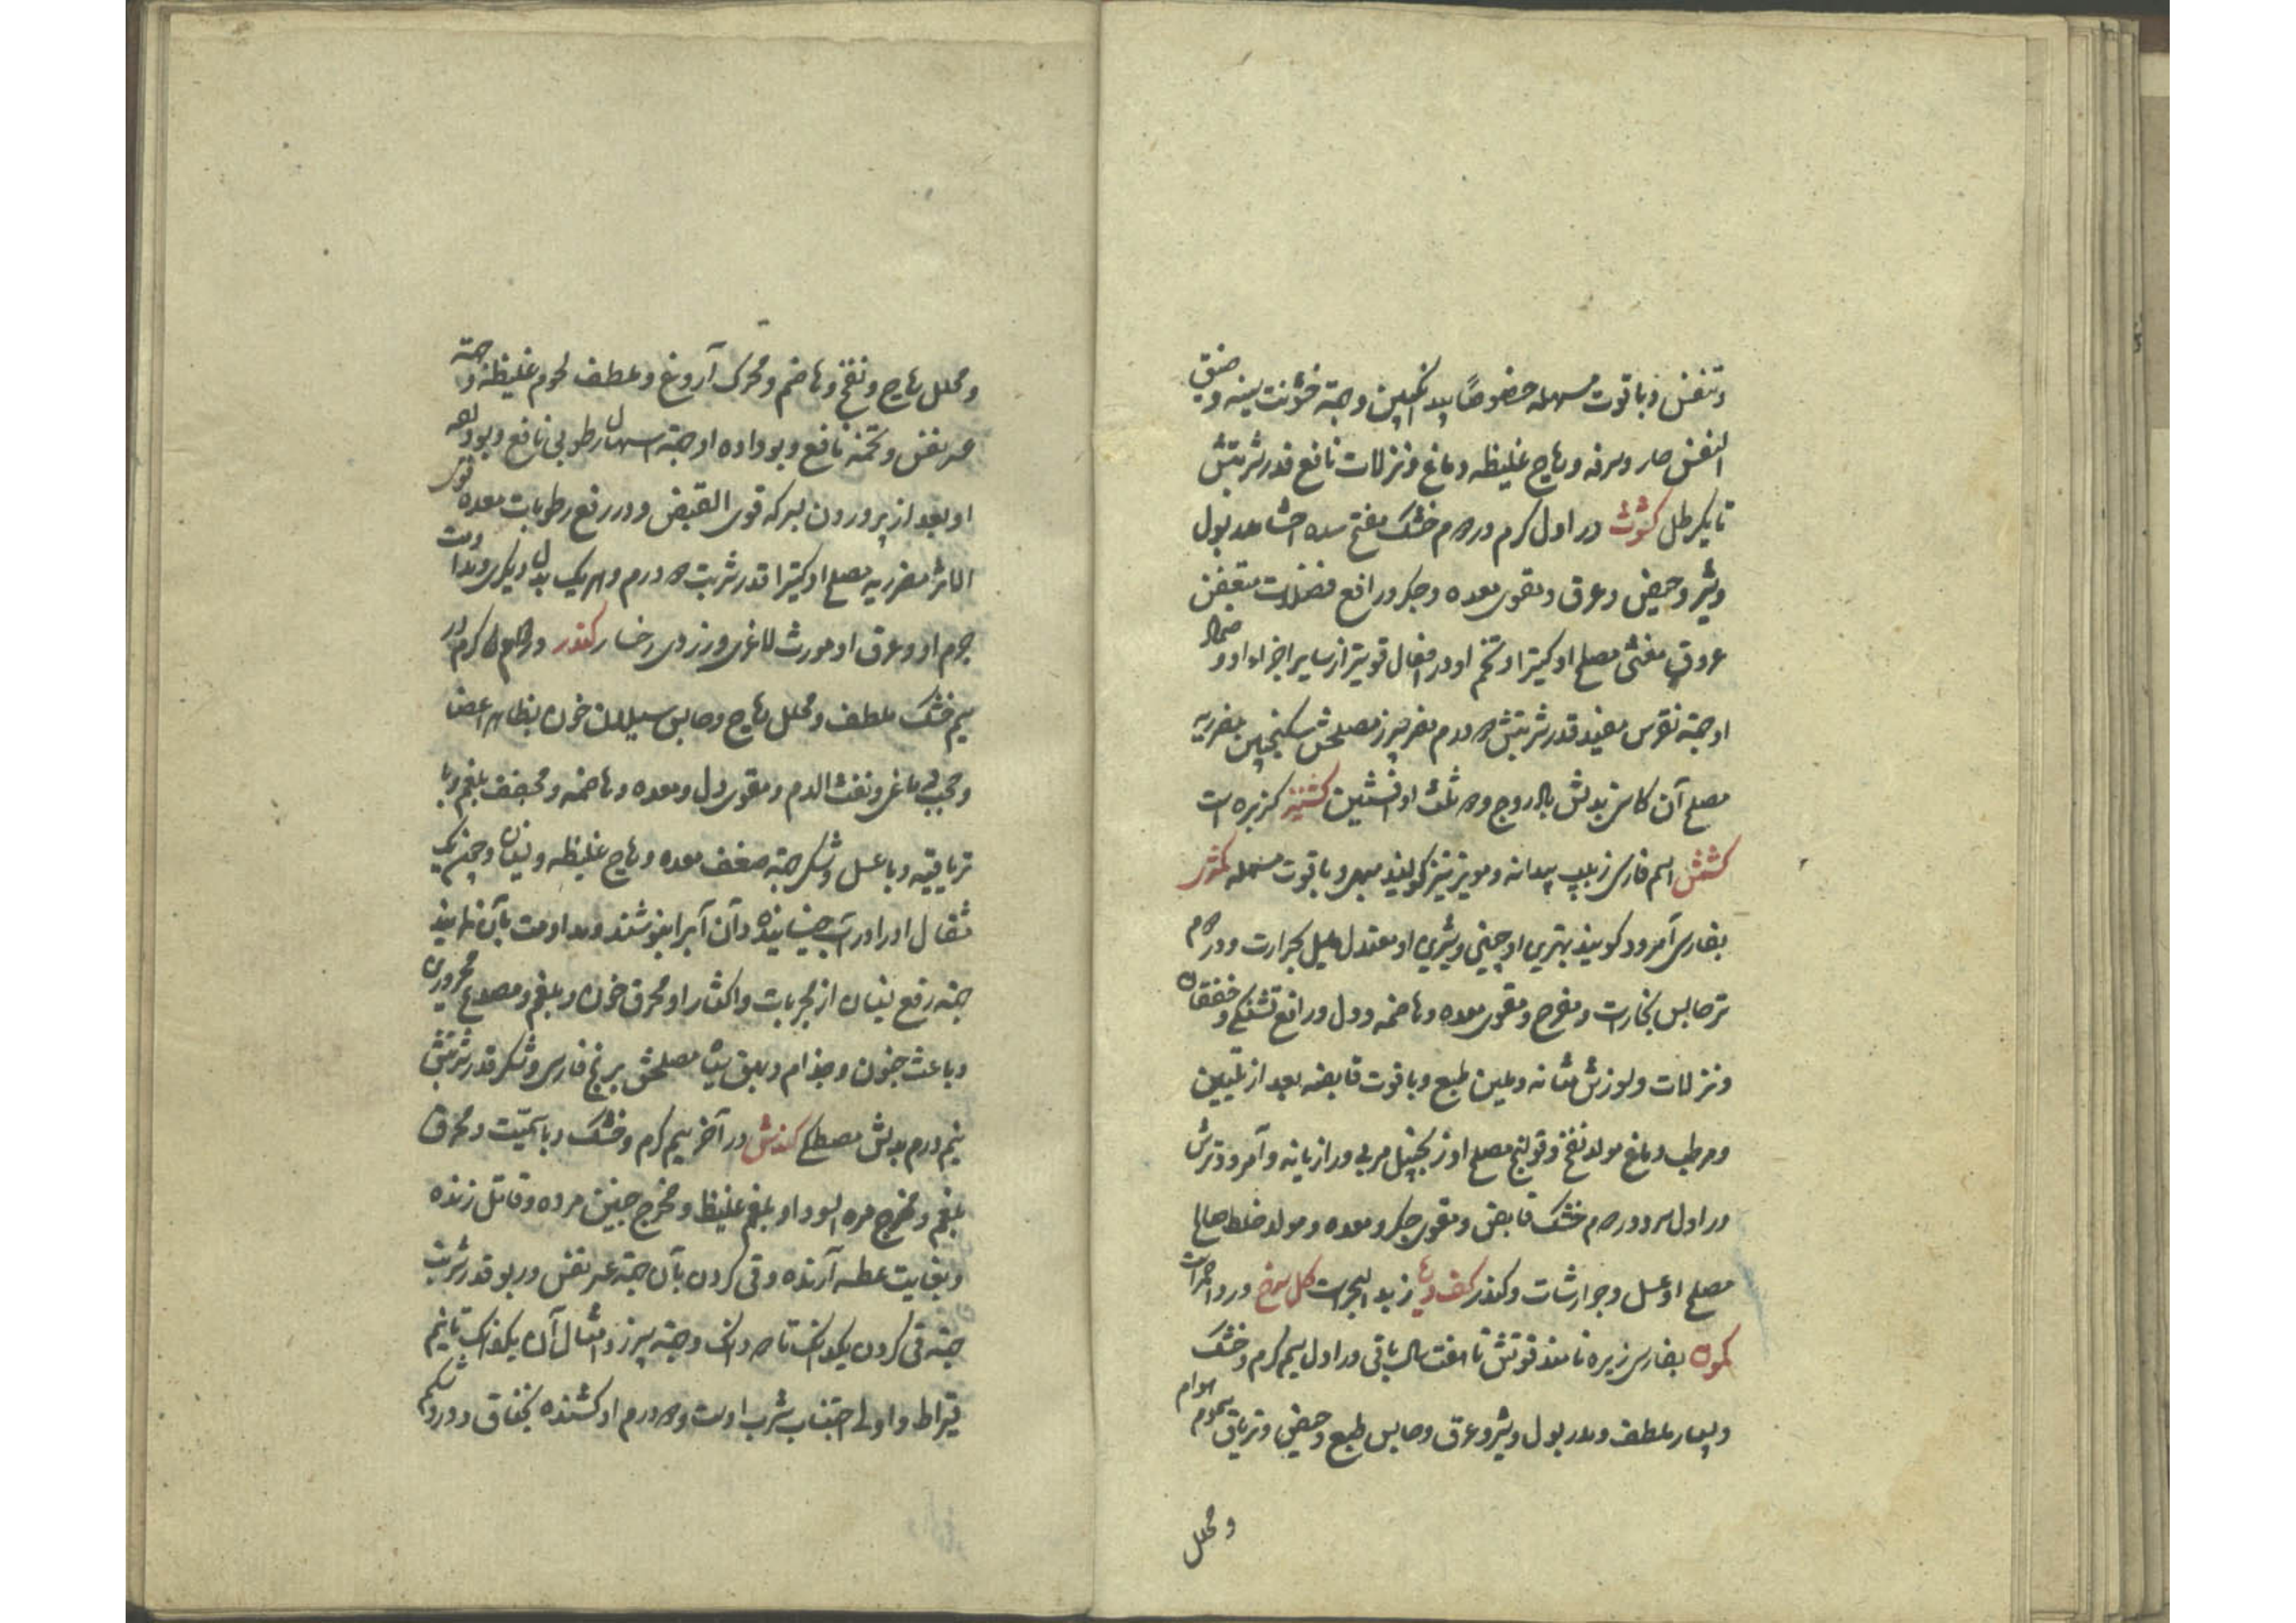 و تنفس و با قوت مسهله خصوصاً بید انجبین و جهته خشونت سینه و ضیق
النفس حار و سرفه و ریاح غلیظه دماغ و نزلات نافع قدر شربتش
تا یکرطل کشوث در اول گرم در دوم خشک مفتح سده احشا مدر بول
و شیر و حیض و عرق و مقوی معده و جگر و رافع فضلات متعفن
عروق مغثی مصلح او کتیرا و تخم او در افعال قویتر از سایر اجزاء او و ضماد
او جهته نقرس مفید قدر شربتش دو درم مضر سپرز مصلحش سکنجبین مضر ریه
مصلح آن کاسنی بدلش بادروج و دو ثلث او افسنتین کشنیز کزبره است
کشمش اسم فارسی زبیب بیدانه و مویز نیز گویند مبهی و با قوت مسهله کمثری
بفارسی امرود گویند بهترین او چینی و شیرین او معتدل مایل بحرارت و در دوم
تر حابس بخارات و مفرح و مقوی معده و هاضمه و دل و رافع تشنگی و خفقان
و نزلات و سوزش مثانه و ملین طبع و با قوت قابضه بعد از تلیین
و مرطب دماغ مولد نفخ و قولنج مصلح او زنجبیل مربی و رازیانه و امرود ترش
در اول سرد و در دوم خشک قابض و مقوی جگر و معده و مولد خلط صالح
مصلح او عسل و جوارشات و کندر کف دریا زبد البحر است گل سرخ ورد احمر است
کمون بفارسی زیره نامند قوتش تا هفت سال باقی در اول سیم گرم و خشک
و بسیار ملطف و مدر بول و شیر و عرق و حابس طبع و حیض و تریاق سموم هوام
و محلل
و محلل ریاح و نفخ و هاضم و محرک آروغ و ملطف لحوم غلیظه و جهته
عسر نفس و تخمه نافع و بو داده او جهته اسهال رطوبی نافع و
او بعد از پروردن بسرکه قوی القبض و در رفع رطوبات معده قوی
الاثر مضر ریه مصلح او کتیرا قدر شربت دو درم و هر یک بدل دیگری و مداومت
جرم او و عرق او مورث لاغری و زردی رخسار کندر در
سیم خشک ملطف و محلل ریاح و حابس سیلان خون بظاهر اعضا
و حجب دماغی و نفث الدم و مقوی دل و معده و هاضمه و مجفف بلغم و با
تریاقیه و با عسل و شکر جهته ضعف معده و ریاح غلیظه و نسیان و چون یک
مثقال او را در آب خیسانیده و آن آب را بنوشند و مداومت بآن نمایند
جهته رفع نسیان از مجربات و اکثار او محرق خون و بلغم و مصدع محرورین
و باعث جنون و جذام و بهق سیاه مصلحش برنج فارسی و شکر قدر شربتش
نیم درم بدلش مصطکی کندش در آخر سیم گرم و خشک و با سمیّت و محرق
بلغم و مخرج مره السودا و بلغم غلیظ و مخرج جنین مرده و قاتل زنده
و بغایت عطسه آرنده و قی کردن بآن جهته عسر نفس و ربو قدر شربت
جهته قی کردن یکدانک تا دو دانک و جهته سپرز و امثال آن یکدانک تا نیم
قیراط و اولی اجتناب شرب اوست و دو درم او کشنده بخناق و درد شکم